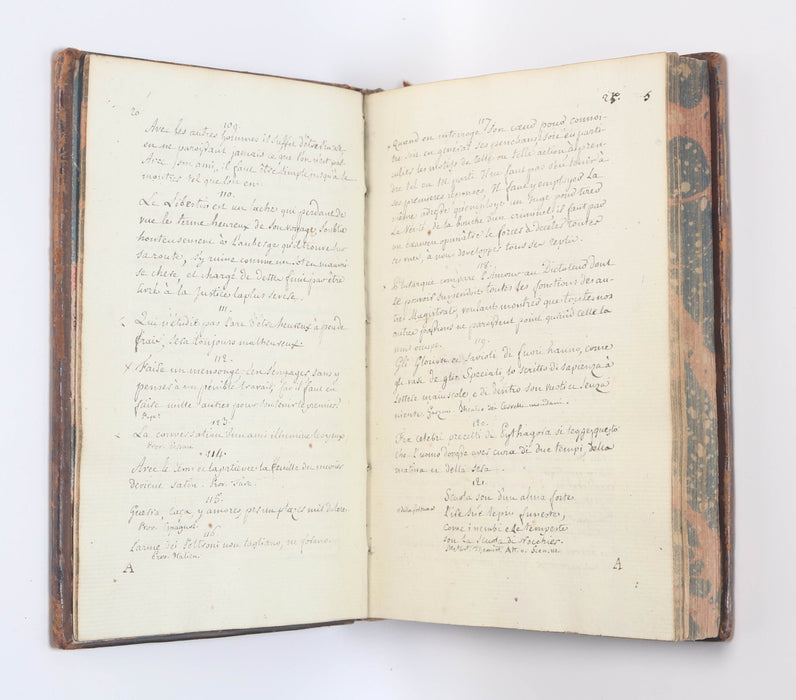 20
109.
Avec les autres hommes il suffit d'être
en ne paroissant jamais ce que l'on n'est pas
Avec son ami, il faut être simple jusqu'à le
montrer tel que l'on est.
110.
Le Libertin est un lache qui perdant de
vue le terme heureux de son voyage, s'oublie
honteusement à l'auberge qu'il trouve sur
sa route, s'y ruine comme un sot en mauvaise
chere et chargé de dettes finit par être
livré à la justice la plus severe.
111.
Qui n'étudie pas l'art d'être heureux à peu de
frais, sera toujours malheureux.
112.
x Faire un mensonge c'en s'engager sans y
penser à un penible travail; car il faut en
faire mille autres pour soutenir le premier.
Pope
113.
La conversation d'un ami illumine les yeux
Prov. Persan
114.
Avec le tems et la patience la feuille du murier
devient satin. Prov.
115.
Guerra, caça, y amores por un plazer mil dolores.
Prov. Espagnol.
116
L'arme dei Poltroni non tagliano, ne forano.
Prov. Italien.
A
5
117
Quand on interroge son cœur pour connoi-
tre soit en general ses penchans soit en parti-
culier les motifs de telle ou telle action à pren-
dre tel en tel parti. Il ne faut pas s'en tenir à
ses premieres reponses. Il faut y employer la
même adresse qu'employe un Juge pour tirer
la verité de la bouche d'un criminel il faut par
un examen opiniâtre le forcer à deceler toutes
ses ruses, à nous developper tous ses replis.
118.
Plutarque compare l'amour au Dictateur dont
le pouvoir suspendoit toutes les fonctions des au-
tres Magistrats, voulant montrer que toutes nos
autres passions ne paroissent point quand celle la
nous occupe.
119.
Gli Glorioso e Savioli di fuori hanno, come
gli vasi de gli Speciali, lo scritto di sapienza à
lettere maiuscole e di dentro son vesti e senza
niente. Garzoni. Theatro dei Cervelli mondani.
120.
Fra celebri precetti di Pythagora si legge questo
che. L'uomo dovesse aver cura di due tempi, della
matina e della sera.
121.
Scuola son d'un alma forte
L'ire sue le piu funeste,
come i nembi e le tempeste
son la scuola di Nocchier.
Metast. Themist. Att. 1.
A